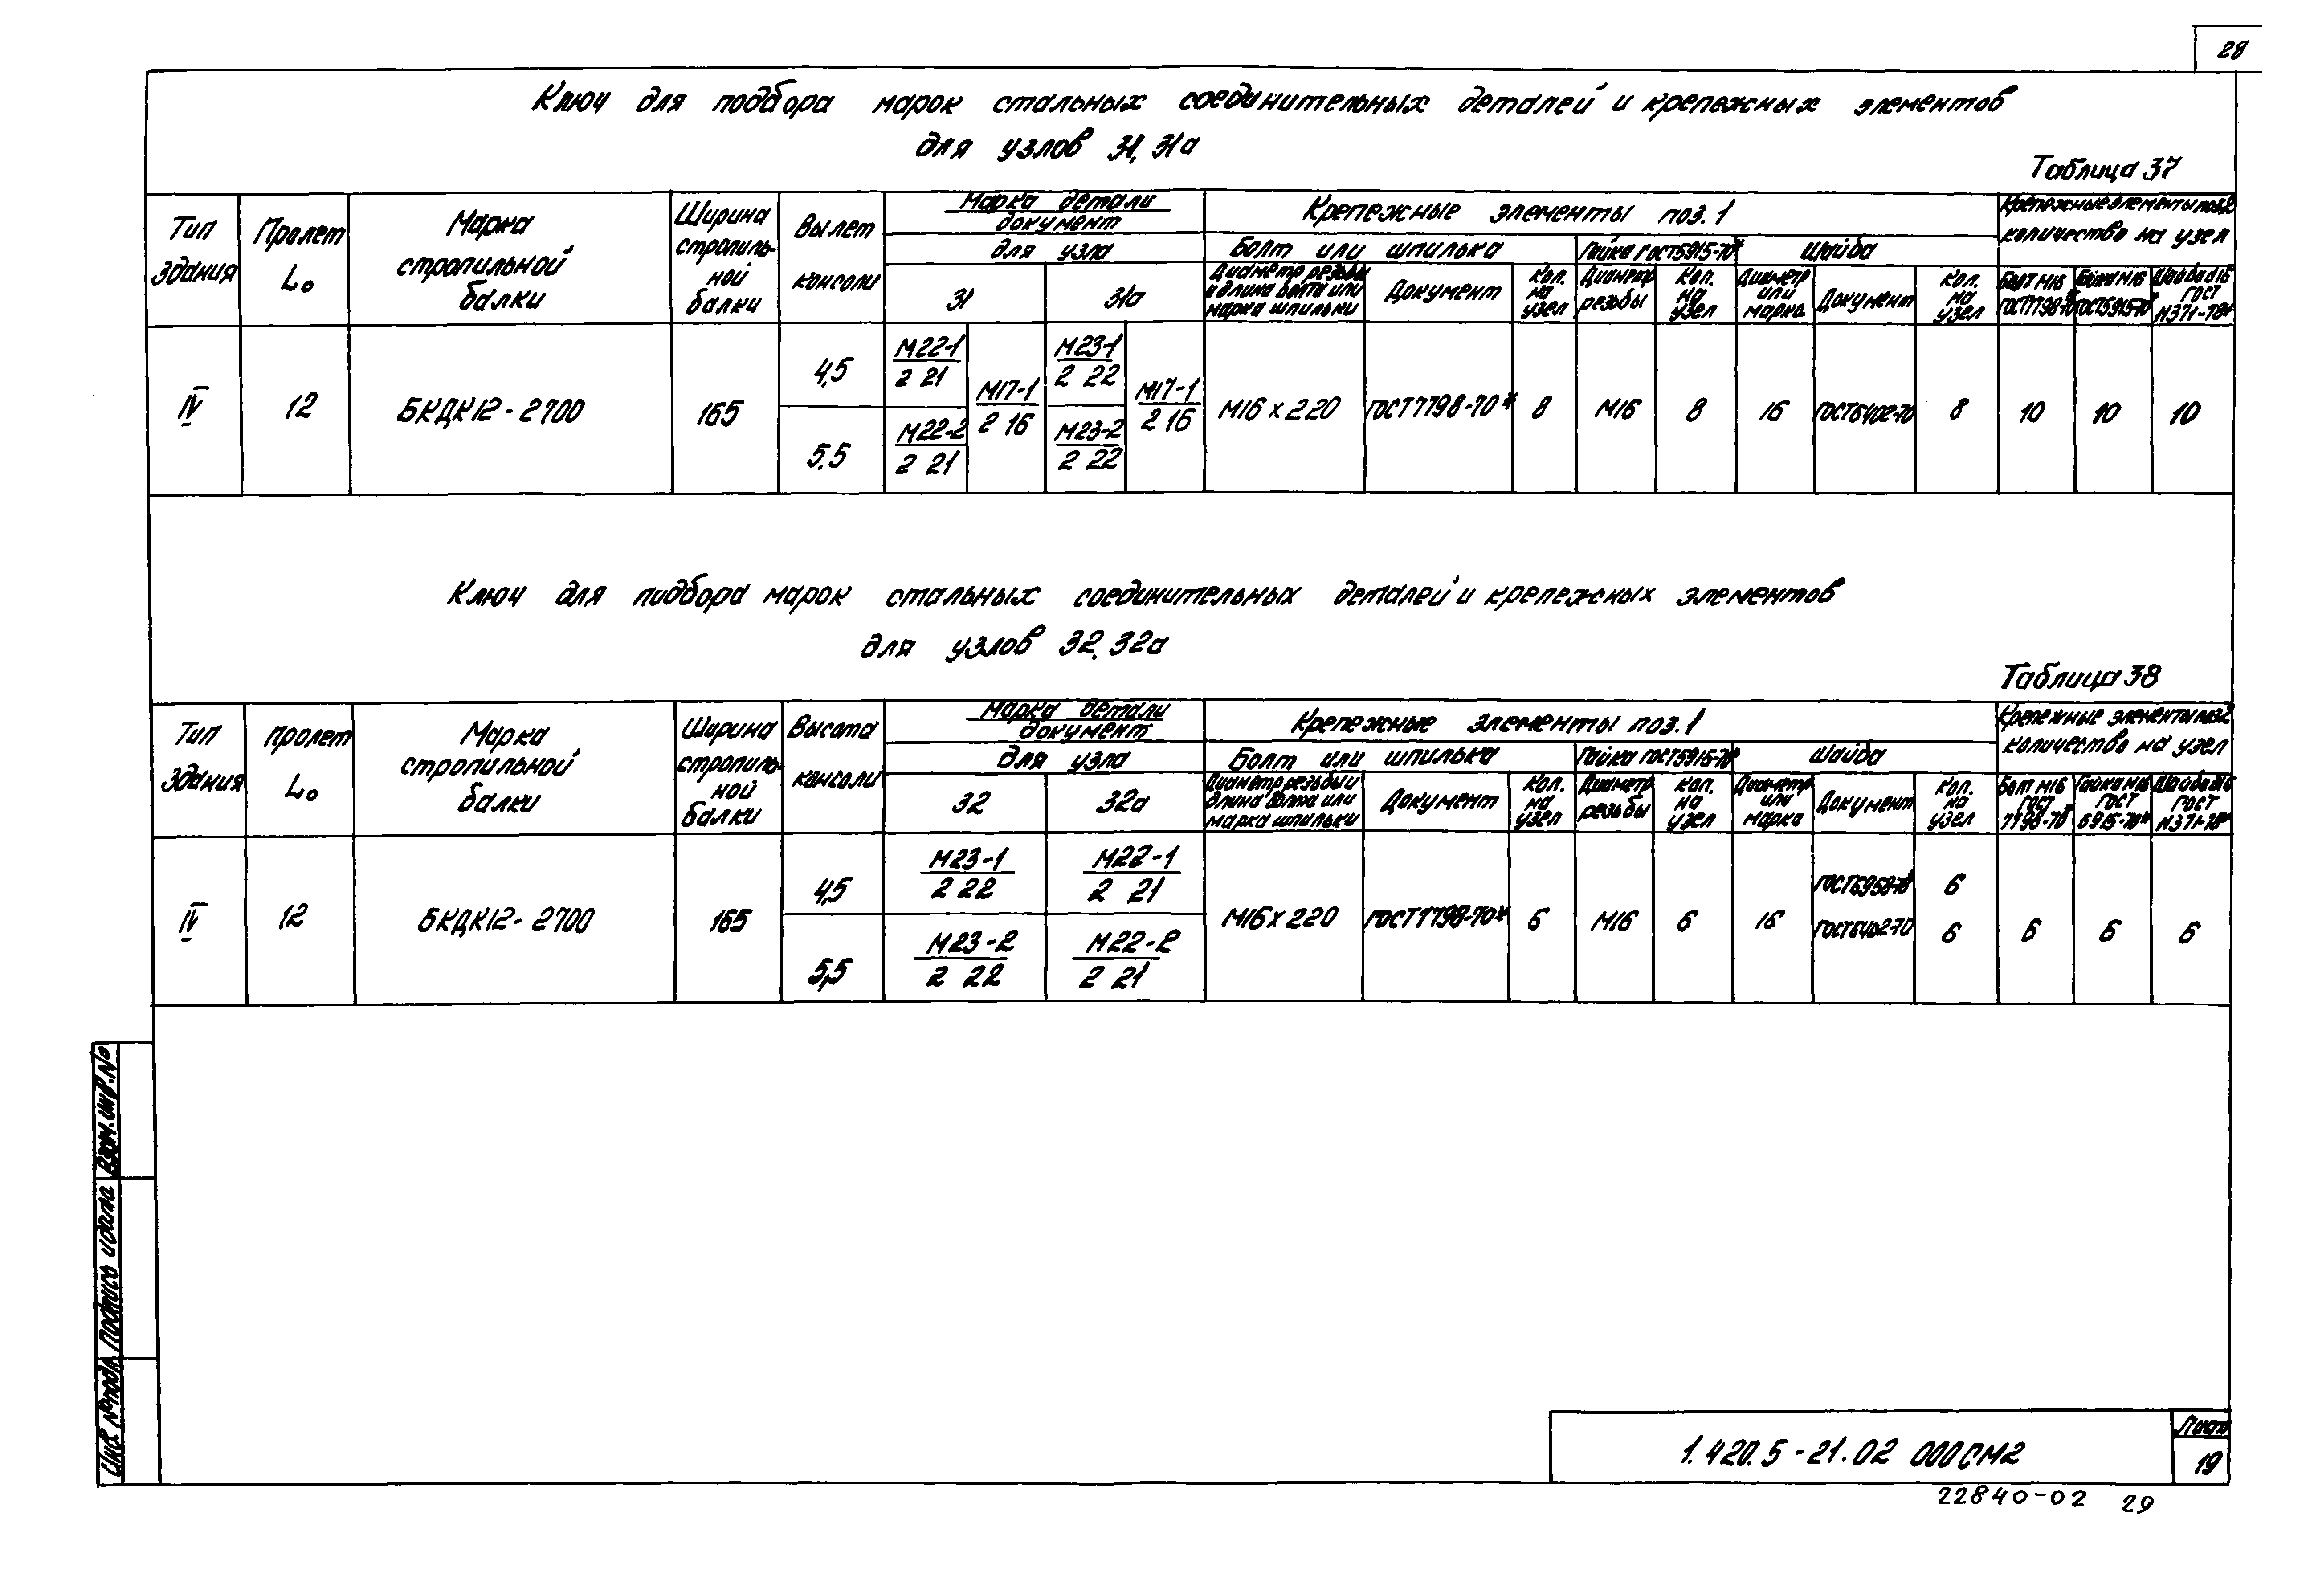 28
Ключ для подбора марок стальных соединительных деталей и крепежных элементов
для узлов 31, 31а
Таблица 37
Тип здания
Пролет L₀
Марка стропильной балки
Ширина стропиль-ной балки
Вылет консоли
Марка детали
документ
для узла
31
31а
Крепежные элементы поз. 1
Болт или шпилька
Гайка ГОСТ5915-70*
Шайба
Диаметр резьбы и длина болта или марка шпильки
Документ
Кол. на узел
Диаметр резьбы
Кол. на узел
Диаметр или марка
Документ
Кол. на узел
Крепежные элементы поз.2
количество на узел
Болт М16 ГОСТ7798-70*
Гайка М16 ГОСТ5915-70*
Шайба d16 ГОСТ 11371-78*
IV
12
БКДК12-2700
165
4,5
М22-1
2 21
М17-1
2 16
М23-1
2 22
М17-1
2 16
5,5
М22-2
2 21
М23-2
2 22
М16 х 220
ГОСТ7798-70*
8
М16
8
16
ГОСТ6402-70
8
10
10
10
Ключ для подбора марок стальных соединительных деталей и крепежных элементов
для узлов 32, 32а
Таблица 38
Тип здания
Пролет L₀
Марка стропильной балки
Ширина стропиль-ной балки
Высота консоли
Марка детали
документ
для узла
32
32а
Крепежные элементы поз. 1
Болт или шпилька
Гайка ГОСТ5915-70*
Шайба
Диаметр резьбы и длина болта или марка шпильки
Документ
Кол. на узел
Диаметр резьбы
Кол. на узел
Диаметр или марка
Документ
Кол. на узел
Крепежные элементы поз2
количество на узел
Болт М16 ГОСТ 7798-70*
Гайка М16 ГОСТ 5915-70*
Шайба d16 ГОСТ 11371-78*
IV
12
БКДК12-2700
165
4,5
М23-1
2 22
М22-1
2 21
5,5
М23-2
2 22
М22-2
2 21
М16 х 220
ГОСТ7798-70*
6
М16
6
16
ГОСТ6958-78*
6
ГОСТ6402-70
6
6
6
6
Взам.инв.№
Подпись и дата
Инв.№подл.
1.420.5-21.02 000СМ2
Лист
19
22840-02 29